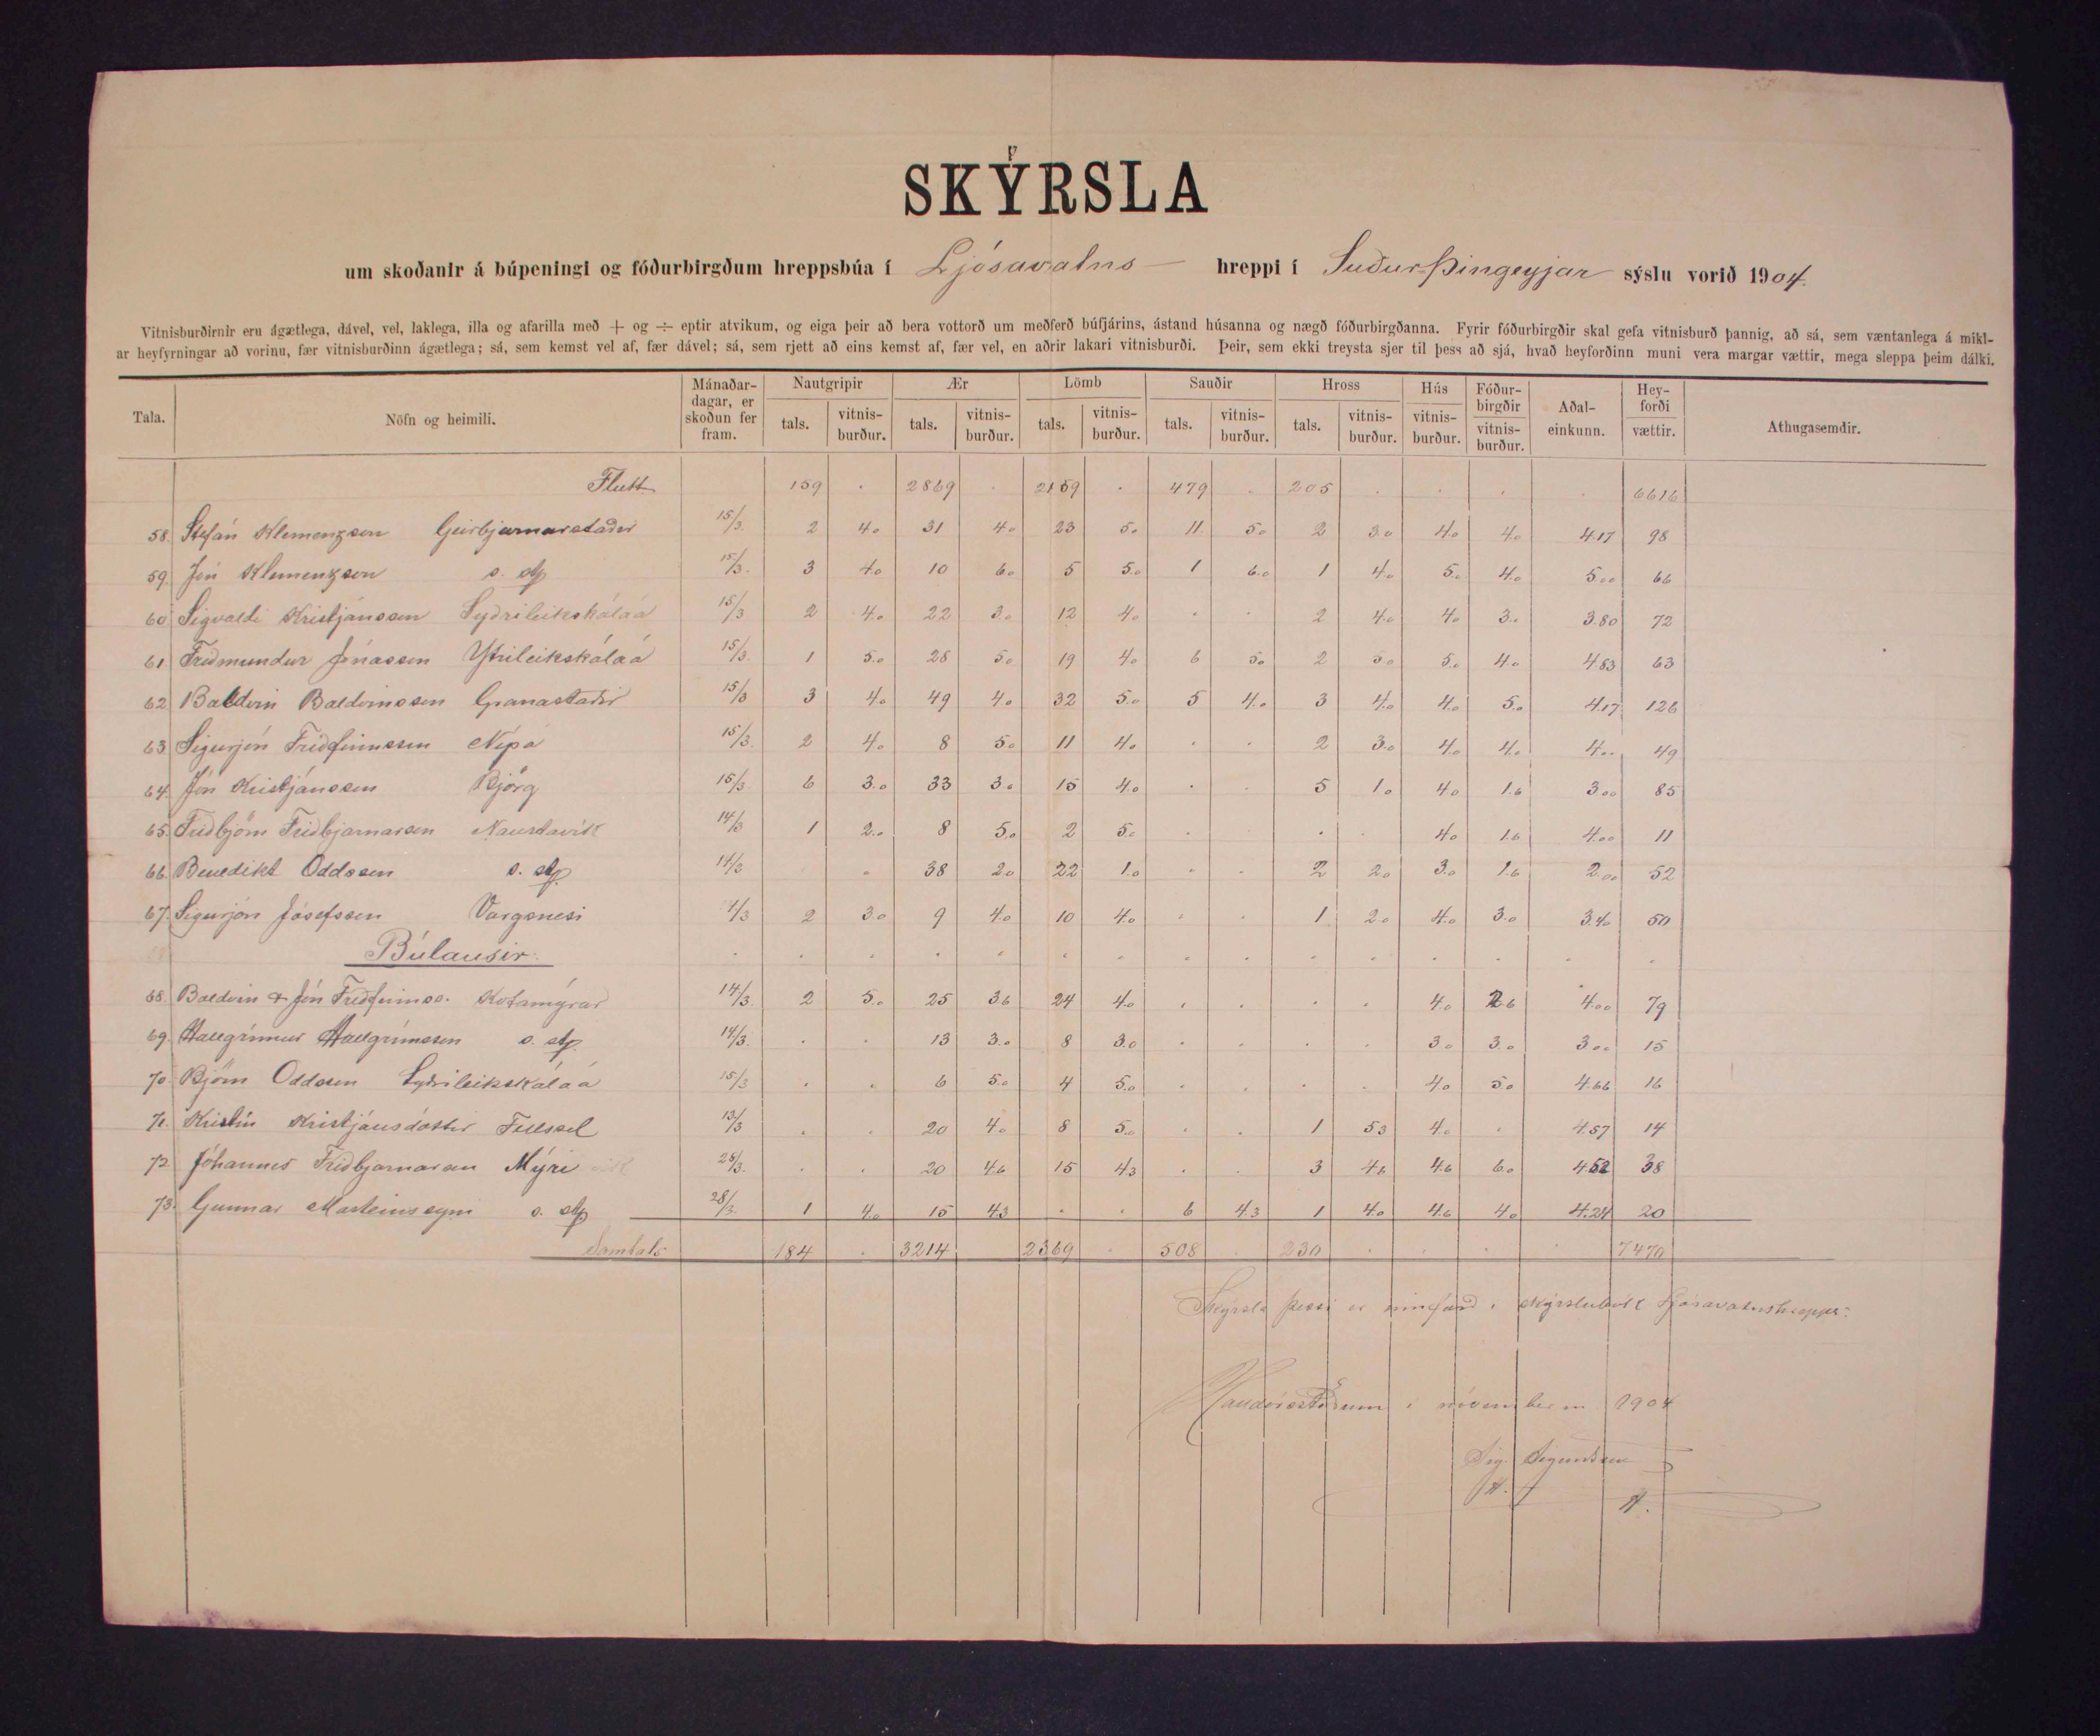 SKÝRSLA
um skoðanir á búpeningi og fóðurbirgðum hreppsbúa í Ljósavatns hreppi í Suður-Þingeyjar sýslu vorið 1904.
Vitnisburðirnir eru ágætlega, dável, vel, laklega, illa og afarilla með + og ÷ eptir atvikum, og eiga þeir að bera vottorð um meðferð búfjárins, ástand húsanna og nægð fóðurbirgðanna. Fyrir fóðurbirgðir skal gefa vitnisburð þannig, að sá, sem væntanlega á mikl-
ar heyfyrningar að vorinu, fær vitnisburðinn ágætlega; sá, sem kemst vel af, fær dável; sá, sem rjett að eins kemst af, fær vel, en aðrir lakari vitnisburði. Þeir, sem ekki treysta sjer til þess að sjá, hvað heyforðinn muni vera margar vættir, mega sleppa þeim dálki.
Tala. Nöfn og heimili. Mánaðar-dagar, er skoðun fer fram. Nautgripir Ær Lömb Sauðir Hross Hús Fóður-birgðir Aðal-einkunn. Hey-forði vættir. Athugasemdir.
tals. vitnis-burður. tals. vitnis-burður. tals. vitnis-burður. tals. vitnis-burður. tals. vitnis-burður. vitnis-burður. vitnis-burður.
Flutt 159 . 2869 . 2159 . 479 . 205 . . . . 6616
58. Stefán Klemenzson Geirbjarnarstaðir 15/3. 2 4.0 31 4.0 23 5.0 11 5.0 2 3.0 4.0 4.0 4.17 98
59. Jón Klemenzson s. st. 15/3. 3 4.0 10 6.0 5 5.0 1 6.0 1 4.0 5.0 4.0 5.00 66
60 Sigvaldi Kristjánsson Syðrileikskálaá 15/3 2 4.0 22 3.0 12 4.0 . . 2 4.0 4.0 3.0 3.80 72
61. Friðmundur Jónasson Ytrileikskálaá 15/3. 1 5.0 28 5.0 19 4.0 6 5.0 2 5.0 5.0 4.0 4.83 63
62 Baldvin Baldvinsson Granastaðir 15/3 3 4.0 49 4.0 32 5.0 5 4.0 3 4.0 4.0 5.0 4.17 126
63 Sigurjón Friðfinnsson Nípá 15/3. 2 4.0 8 5.0 11 4.0 . . 2 3.0 4.0 4.0 4.00 49
64. Jón Kristjánsson Björg 15/3 6 3.0 33 3.0 15 4.0 . . 5 1.0 4.0 1.6 3.00 85
65. Friðbjörn Friðbjarnarson Naustavík 14/3 1 2.0 8 5.0 2 5.0 . . . . 4.0 1.6 4.00 11
66. Benedikt Oddsson s. st. 14/3 . 38 2.0 22 1.0 . . 2 2.0 3.0 1.6 2.00 52
67. Sigurjón Jósefsson Vargsnesi 14/3 2 3.0 9 4.0 10 4.0 . . 1 2.0 4.0 3.0 3.40 50
Búlausir.
68. Baldvin & Jón Friðfinnss. Kotamýrar 14/3. 2 5.0 25 3.6 24 4.0 . . . . 4.0 2.6 4.00 79
69. Hallgrímur Hallgrímsson s. st. 14/3. . . 13 3.0 8 3.0 . . . . 3.0 3.0 3.00 15
70. Björn Oddsson Syðrileikskálaá 15/3 . . 6 5.0 4 5.0 . . . . 4.0 5.0 4.66 16
71. Kristín Kristjánsdóttir Fellssel 13/3 . . 20 4.0 8 5.0 . . 1 5.3 4.0 . 4.57 14
72 Jóhannes Friðbjarnarson Mýri 28/3. . . 20 4.6 15 4.3 . . 3 4.6 4.6 6.0 4.52 38
73. Gunnar Marteinsson s. st. 28/3. 1 4.0 15 4.3 . . 6 4.3 1 4.0 4.6 4.0 4.24 20
Samtals 184 . 3214 2369 . 508 . 230 . . . . 7470
Skýrsla þessi er innfærð í skýrslubók Ljósavatnshrepps.
í nóvember 1904
Sig. Sigurðsson